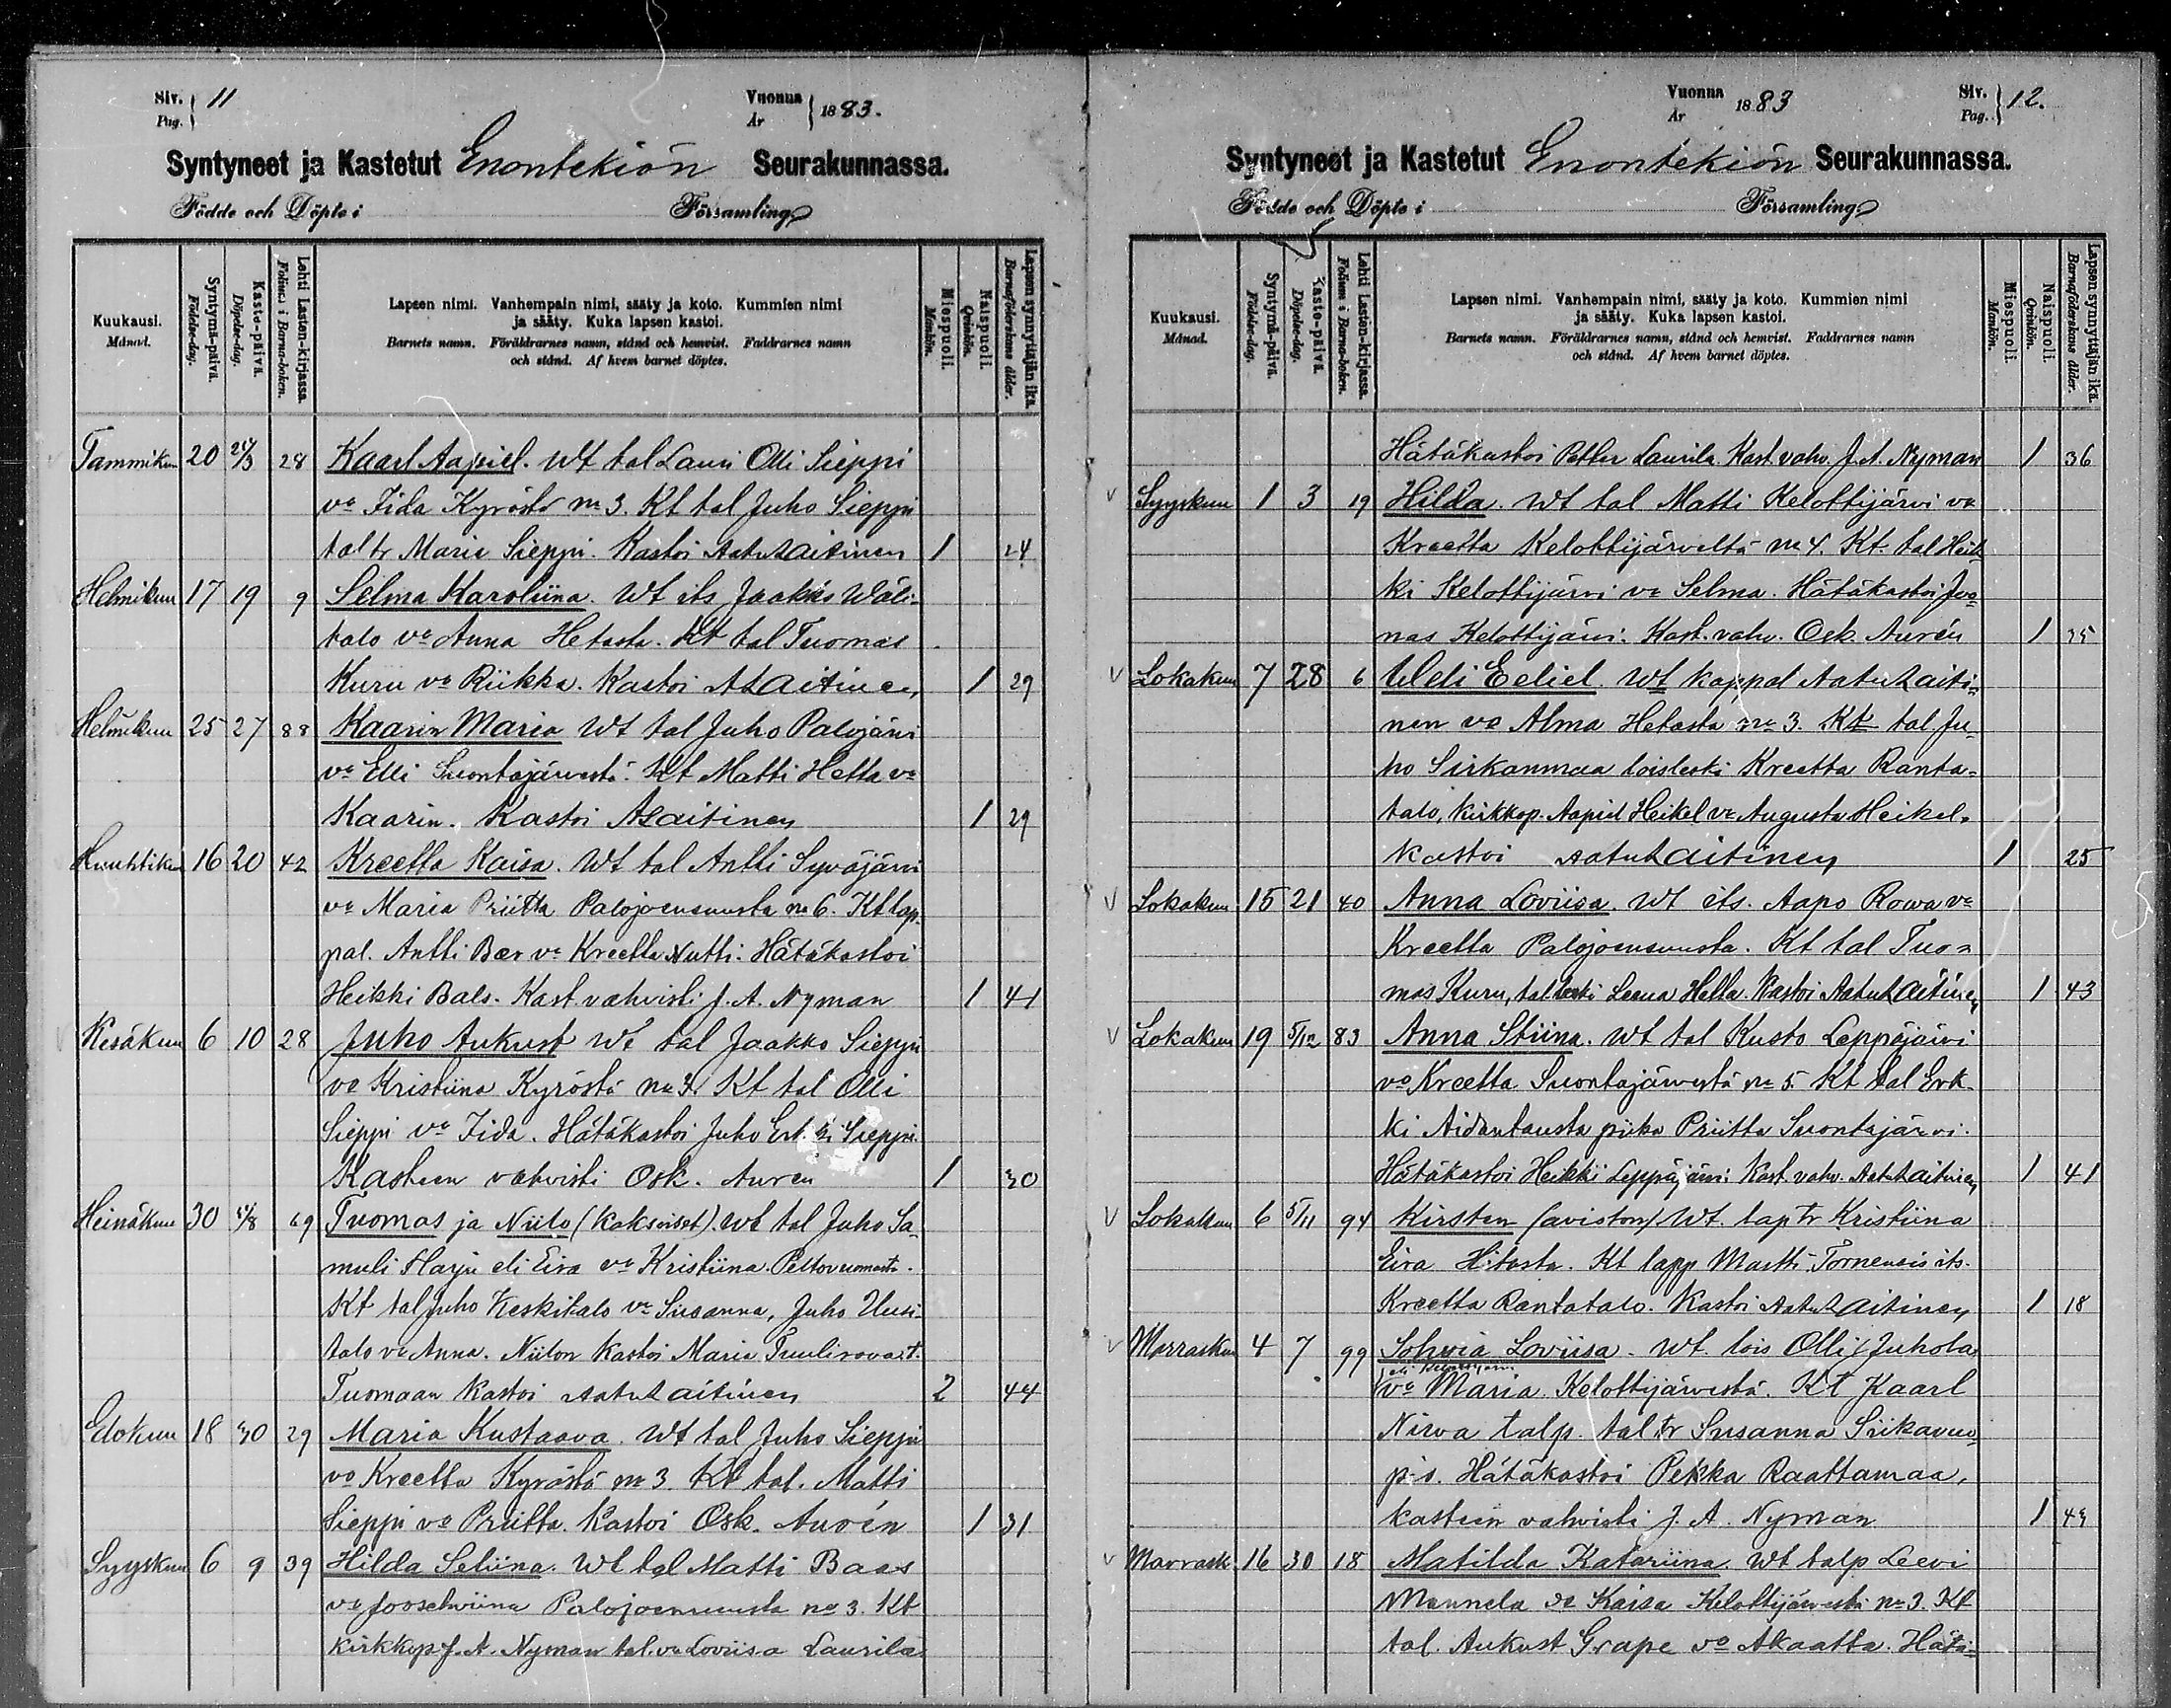 Siv. 11
Pag.
Vuonna 1883.
År
Syntyneet ja Kastetut Enontekiön Seurakunnassa.
Födde och Döpte i Församling
Kuukausi. Månad.
Syntymä-päivä. Födelse-dag.
Kaste-päivä. Döpelse-dag.
Lehti Lasten-kirjassa. Folium i Barna-boken.
Lapsen nimi. Vanhempain nimi, sääty ja koto. Kummien nimi
ja sääty. Kuka lapsen kastoi.
Barnets namn. Föräldrarnes namn, stånd och hemvist. Faddrarnes namn
och stånd. Af hvem barnet döptes.
Miespuoli. Mankön.
Naispuoli. Qvinkön.
Lapsen synnyttäjän ikä. Barnaföderskans ålder.
Tammikuu 20 28 Kaarl Aapiel. Wt tal Lauri Olli Sieppi
vo Iida Kyröstä no 3. Kt tal Juho Sieppi
tal tr Maria Sieppi. Kastoi Aatu Laitinen 1 24
Helmikuu 17 19 9 Selma Karoliina. Wt its Jaakko Wäli-
talo vo Anna Hetasta. Kt tal Tuomas
Kuru vo Riikka. Kastoi A Laitinen 1 29
Helmikuu 25 27 88 Kaarin Maria Wt tal Juho Palojärvi
vo Elli Suontajärvestä. Kt Matti Hetta vo
Kaarin. Kastoi A Laitinen 1 29
Huuhtikuu 16 20 42 Kreetta Kaisa. Wt tal Antti Syväjärvi
vo Maria Priitta Palojoensuusta no 6. Kt lap-
pal. Antti Bær vo Kreetta Nutti. Hätäkastoi
Heikki Bals. Kast. vahvisti J. A. Nyman 1 41
Kesäkuu 6 10 28 Juho Aukust Wt tal Jaakko Sieppi
vo Kristiina Kyröstä no 3. Kt tal Olli
Sieppi vo Iida. Hätäkastoi Juho Erkki Sieppi.
Kasteen vahvisti Osk. Auren 1 30
Heinäkuu 30 5/8 69 Tuomas ja Niilo (kaksoiset). Wt tal Juho Sa-
muli Harju eli Eira vo Kristiina Peltovuomasta.
Kt tal Juho Keskitalo vo Susanna, Juho Uusi-
talo vo Anna. Niilon kastoi Maria Puulirova t.
Tuomaan kastoi Aatu Laitinen 2 44
Elokuu 18 30 29 Maria Kustaava. Wt tal Juho Sieppi
vo Kreetta Kyröstä no 3. Kt tal. Matti
Sieppi vo Priitta. Kastoi Osk. Aurén 1 31
Syyskuu 6 9 39 Hilda Seliina. Wt tal Matti Baas
vo Joosehviina Palojoensuusta no 3. Kt
kirkkop J. A. Nyman tal. vo Loviisa Laurila
Vuonna 1883
År
Siv. 12.
Pag.
Syntyneet ja Kastetut Enontekiön Seurakunnassa.
Födde och Döpte i Församling
Kuukausi. Månad.
Syntymä-päivä. Födelse-dag.
Kaste-päivä. Döpelse-dag.
Lehti Lasten-kirjassa. Folium i Barna-boken.
Lapsen nimi. Vanhempain nimi, sääty ja koto. Kummien nimi
ja sääty. Kuka lapsen kastoi.
Barnets namn. Föräldrarnes namn, stånd och hemvist. Faddrarnes namn
och stånd. Af hvem barnet döptes.
Miespuoli. Mankön.
Naispuoli. Qvinkön.
Lapsen synnyttäjän ikä. Barnaföderskans ålder.
Hätäkastoi Petter Laurila. Kast. vahv. J. A. Nyman 1 36
Syyskuu 1 3 19 Hilda. Wt tal Matti Kelottijärvi vo
Kreetta Kelottijärveltä no 4. Kt. tal Heik-
ki Kelottijärvi vo Selma. Hätäkastoi Joo-
nas Kelottijärvi. Kast. vahv. Osk. Aurén 1 35
Lokakuu 7 28 6 Uleli Eeliel. Wt kappal Aatu Laiti-
nen vo Alma Hetasta no 3. Kt tal Ju-
ho Sirkanmaa loisleski Kreetta Ranta-
talo, kirkkop. Aapid Heikel vo Augusta Heikel.
Kastoi Aatu Laitinen 1 25
Lokakuu 15 21 40 Anna Loviisa. Wt its. Aapo Rowa vo
Kreetta Palojoensuusta. Kt tal Tuo-
mas Kuru, tal leski Leena Hetta. Kastoi Aatu Laitinen 1 43
Lokakuu 19 5/12 83 Anna Stiina. Wt tal Kusto Leppäjärvi
vo Kreetta Suontajärvestä no 5. Kt tal Erk-
ki Aidantausta piika Priitta Suontajärvi.
Hätäkastoi Heikki Leppäjärvi. Kast. vahv. Aatu Laitinen 1 41
Lokakuu 6 5/11 94 Kirsten (avioton) Wt. lap tr Kristiina
Eira Hetasta. Kt lapp Martti Tornensis its.
Kreetta Rantatalo. Kastoi Aatu Laitinen 1 18
Marraskuu 4 7 99 Sohvia Loviisa. Wt lois Olli Juhola
eli Kelottijärvi
vo Maria Kelottijärvestä. Kt Kaarl
Nirva talp. tal tr Susanna Siikavuo-
pio. Hätäkastoi Pekka Raattamaa,
kasteen vahvisti J. A. Nyman 1 43
Marrask. 16 30 18 Matilda Katariina. Wt talp Leevi
Mannela vo Kaisa Kelottijärvestä no 3. Kt
tal. Aukust Grape vo Akaatta. Hätä-